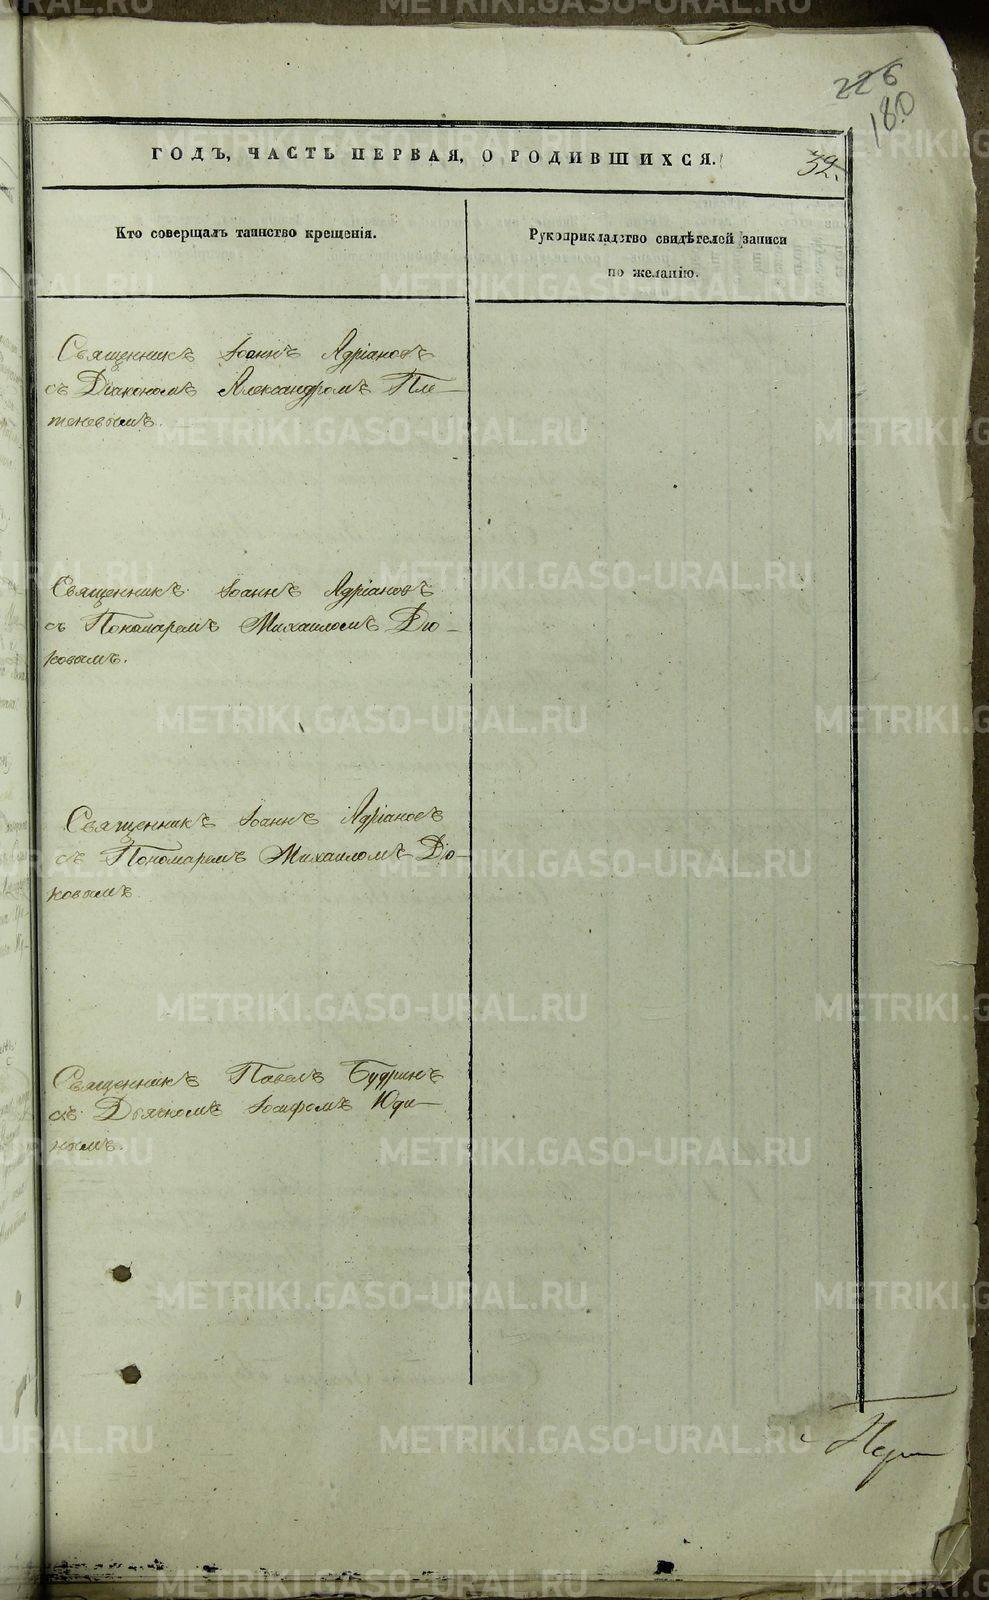 226
180
ГОДЪ, ЧАСТЬ ПЕРВАЯ, О РОДИВШИХСЯ.
32.
Кто совершалъ таинство крещенія.
Рукоприкладство свидѣтелей записи
по желанію.
Священникъ Іоаннъ Адріановъ
съ Діакономъ Александромъ Пле-
теневымъ.
Священникъ Іоаннъ Адріановъ
съ Пономаремъ Михаиломъ Дю-
ковымъ.
Священникъ Іоаннъ Адріановъ
съ Пономаремъ Михаиломъ Дю-
ковымъ
Священникъ Павелъ Будринъ
съ Дьячкомъ Іосифомъ Юди-
нымъ.
METRIKI.GASO-URAL.RU